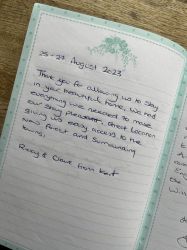 25 - 27 August 2023
Thank you for allowing us to stay
in your beautiful home, we had
everything we needed to make
our stay pleasant. Great Location
giving us easy access to the
New Forest and surrounding
towns.
& Clive from Kent